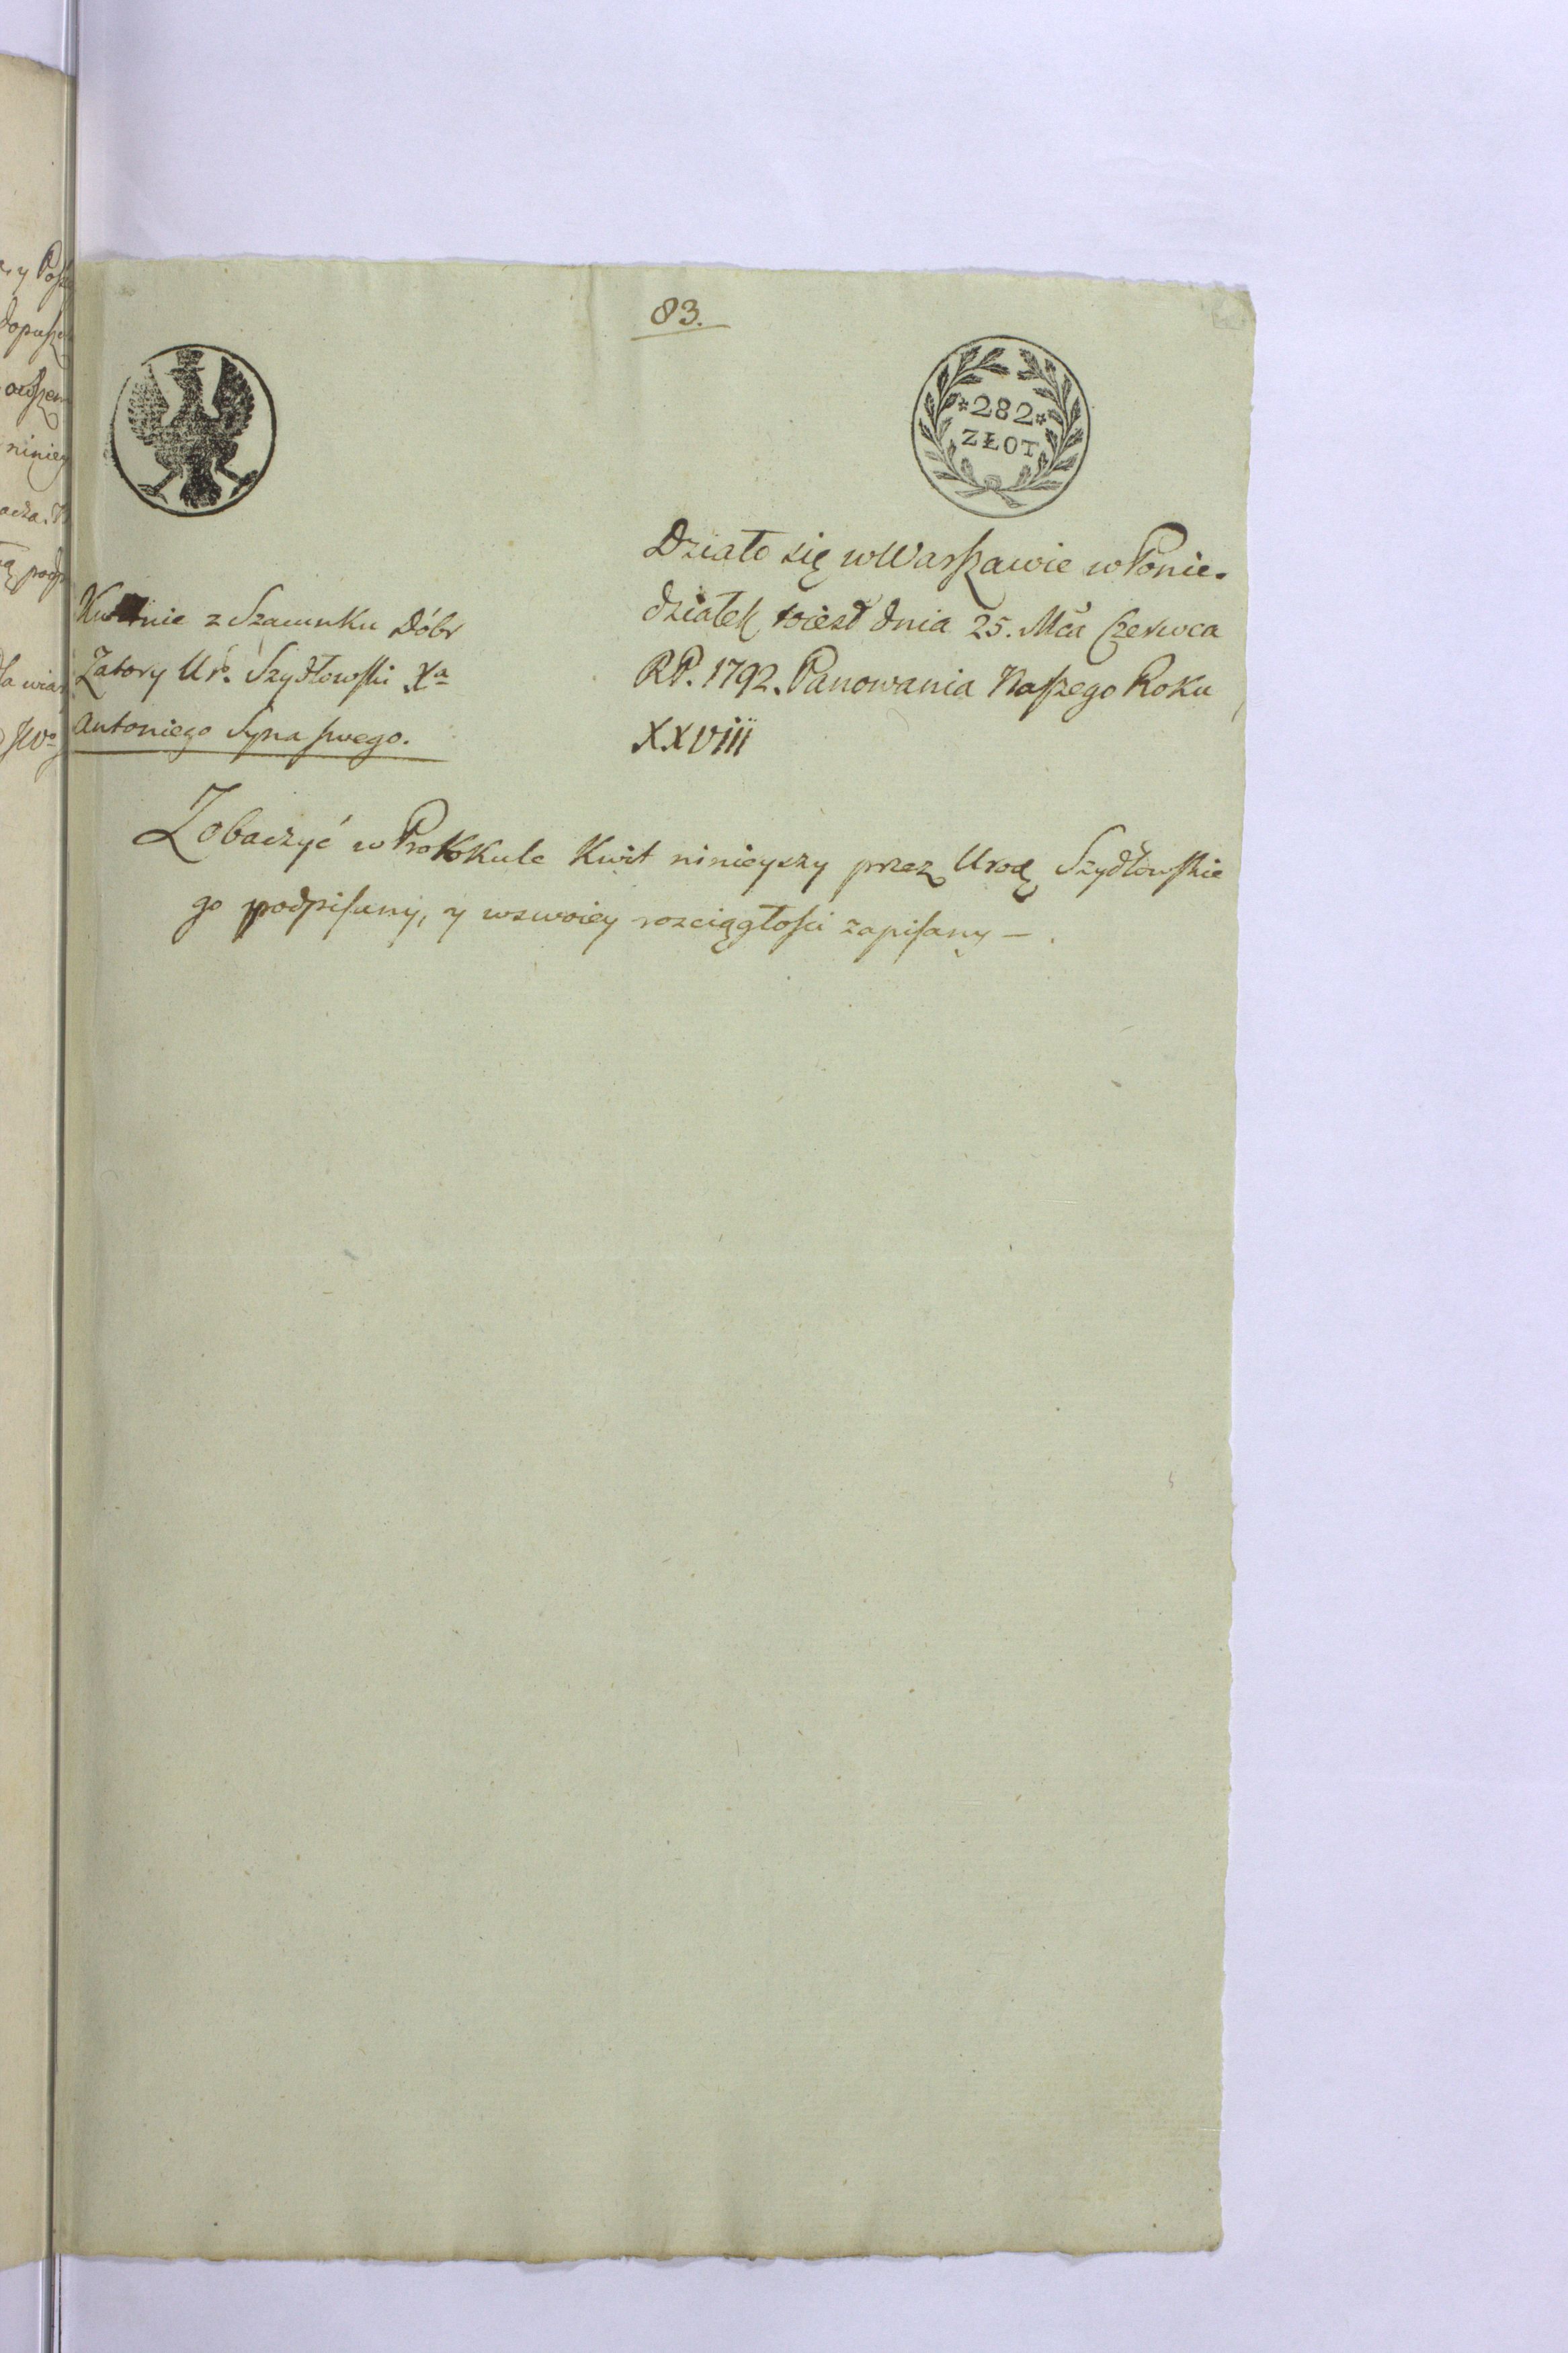 83.
*282*
ZŁOT
Działo się w Warszawie w Ponie-
działek to iest dnia 25. Mca Czerwca
RP. 1792. Panowania Naszego Roku
XXVIII
z Szacunku Dóbr
Zatory Ur. Szydłowski Xa
Antoniego Syna swego.
Zobaczyć w Protokule Kwit ninieyszy przez Urod. Szydłowskie
go podpisany, y w swoiey rozciągłości zapisany —